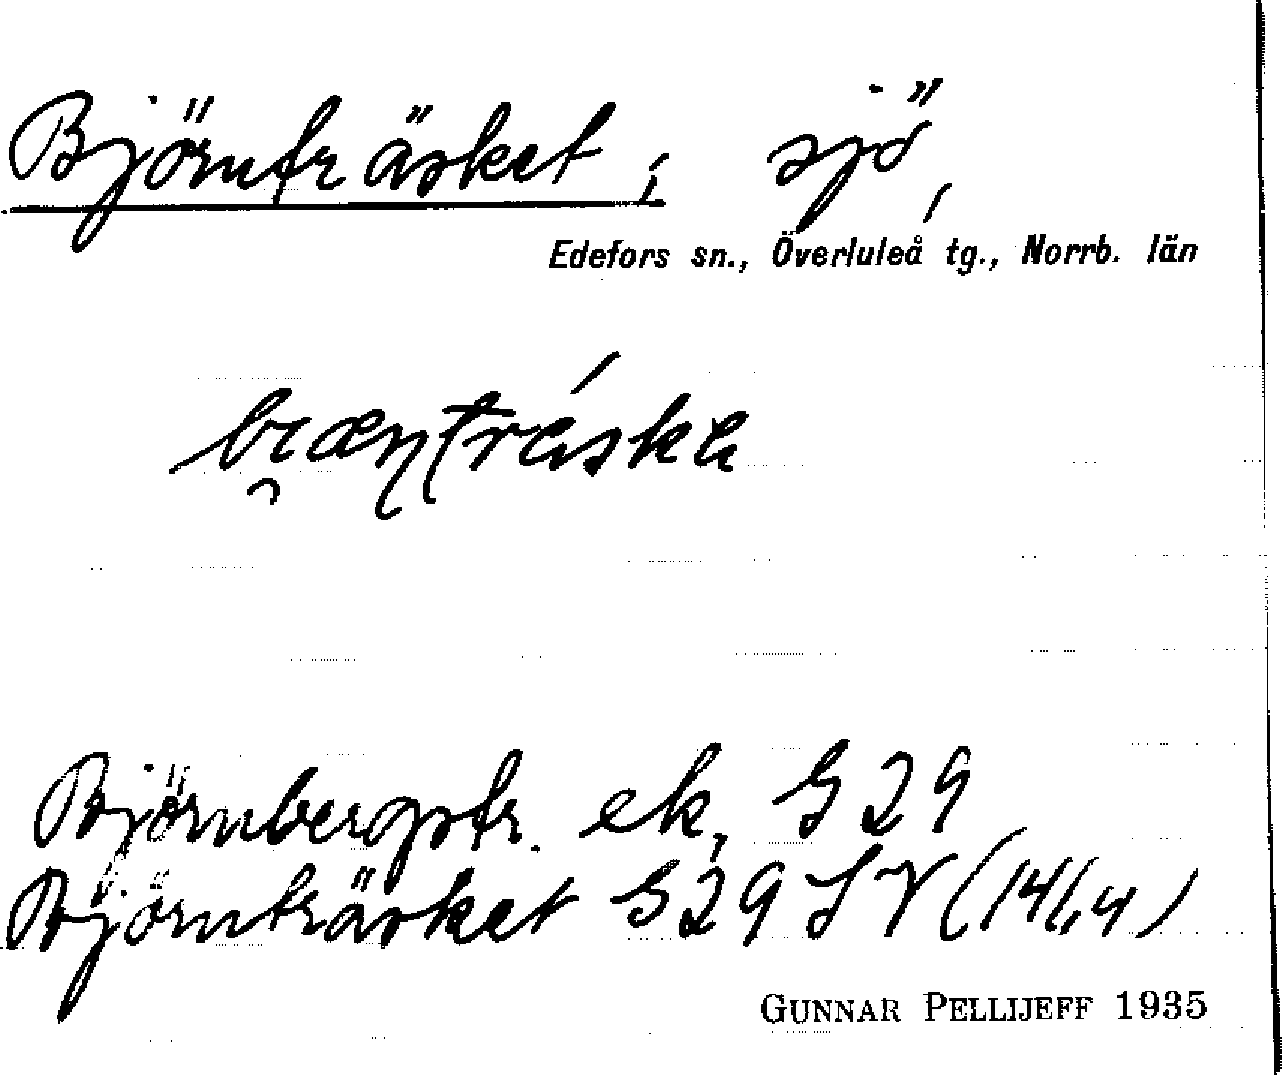 Björnträsket, sjö,
Edefors sn., Överluleå tg., Norrb. län
Björnbergstr. ek, S 29
Björnträsket S 29 SV (14/14)
GUNNAR PELLIJEFF 1935